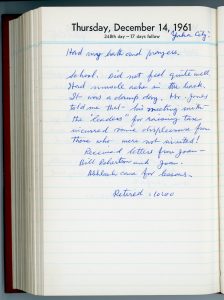 Thursday, December 14, 1961
348th day — 17 days follow
Yuba City.
Had my bath and prayers.
School. Did not feel quite well
Had muscle ache in the back.
It was a damp day. Mr. Jones
told me that his meeting with
the "leaders" for raising tax
incurred some displeasure from
those who were not invited!
Received letters from Joan —
Bill Robertson and Joan.
came for lessons.
Retired - 10:00